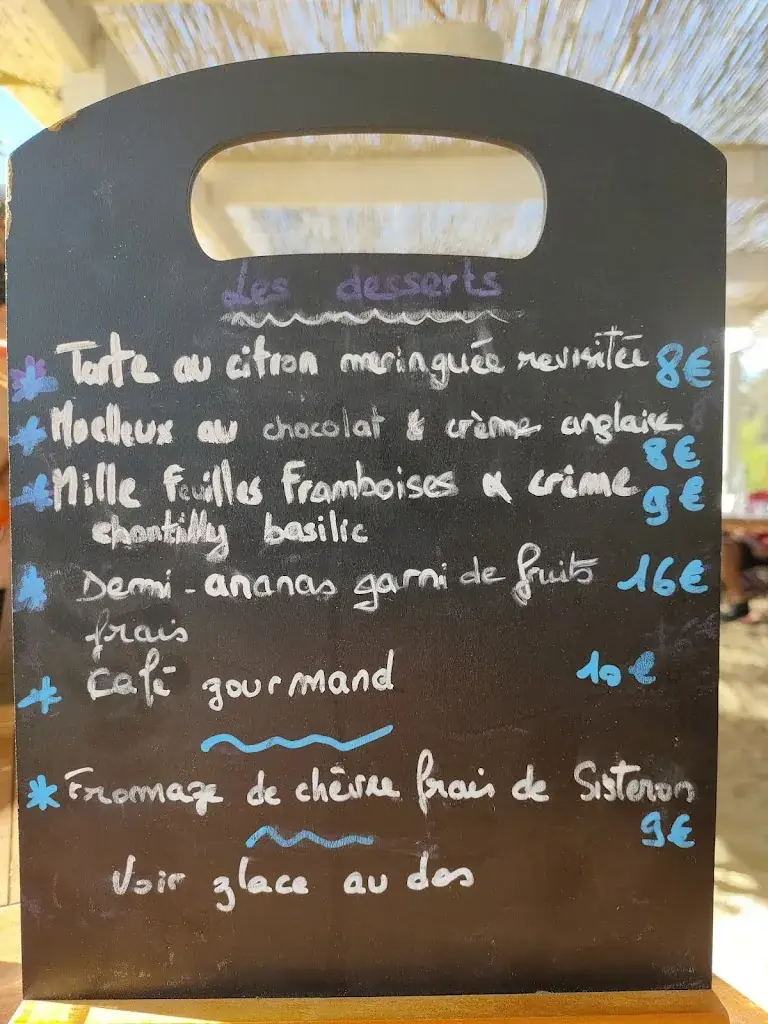 Les desserts
* Tarte au citron meringuée revisitée 8€
* Moelleux au chocolat & crème anglaise
8€
* Mille feuilles Framboises & crème 9€
chantilly basilic
* Demi-ananas garni de fruits 16€
frais
* Café gourmand 10€
* Fromage de chèvre frais de Sisteron
9€
Voir glace au dos